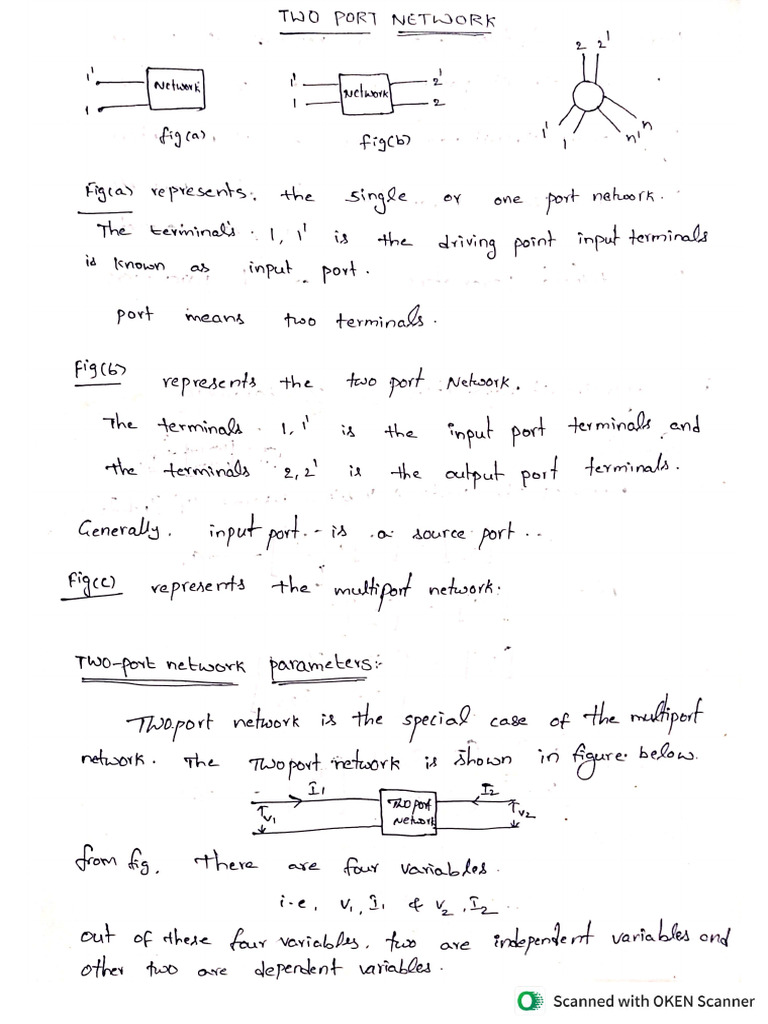 TWO PORT NETWORK
2 2'
1' Network
1' Network 2'
1
1 2
fig(a).
fig(b)
1' 1 n' n
Fig(a) represents. the single or one port network.
The terminals. 1, 1' is the driving point input terminals
is known as input port.
port means two terminals.
Fig(b) represents the two port Network.
The terminals 1, 1' is the input port terminals and
the terminals 2, 2' is the output port terminals.
Generally. input port. is a source port..
Fig(c) represents the multiport network:
TWO-port network parameters:-
TWOport network is the special case of the multiport
network. The TWOport network is shown in figure below.
I1 TWOport I2
V1 Network V2
from fig. There are four variables.
i.e, V1, I1 & V2, I2
out of these four variables, two are independent variables and
other two are dependent variables.
Scanned with OKEN Scanner